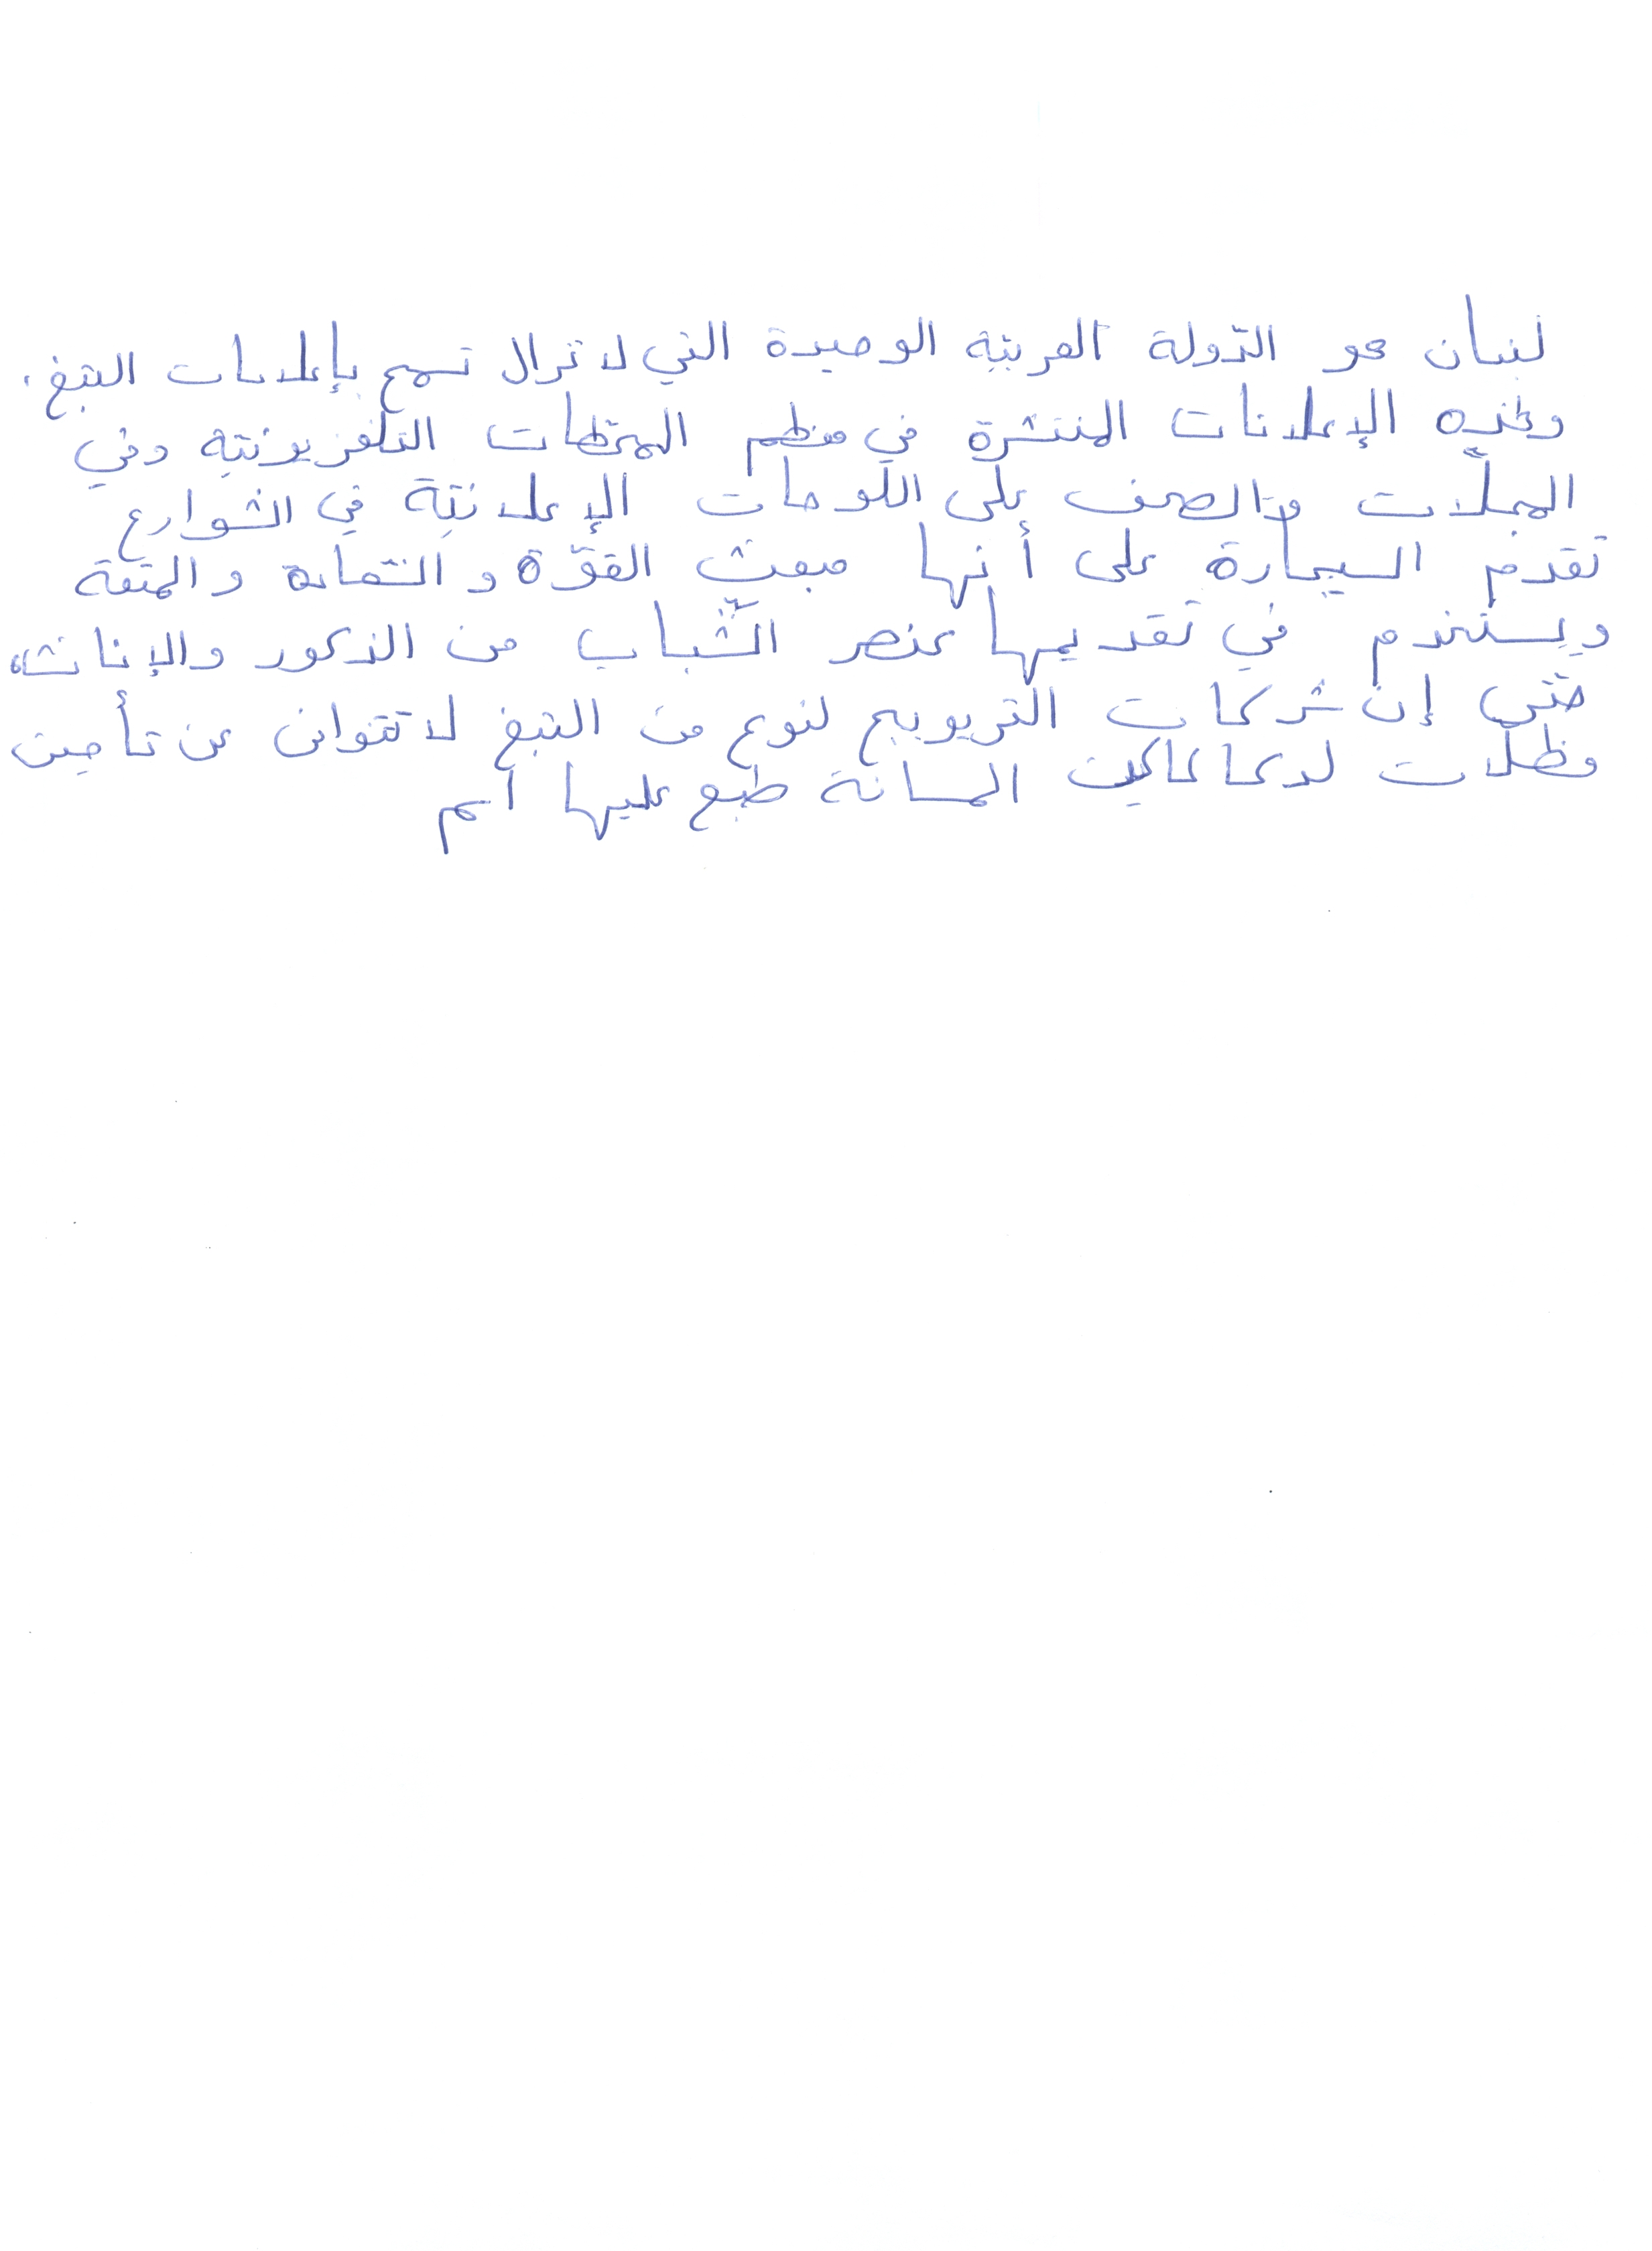 لبنان هو الدّولة العربيّة الوحيدة التي لا تزال تسمح بإعلانات التبغ.
وهذه الإعلانات المنتشرة في معظم المحطات التلفزيونيّة وفي
المجلّات والصحف على اللّوحات الإعلانيّة في الشوارع
تقدم السيجارة على أنها مبعث القوّة و الشّهامة والمتعة
ويستخدم في تقديمها عنصر الشّباب من الذكور والإناث،
حتّى إن شركات الترويج لنوع من التبغ لا تتوان عن تأمين
مظلّات لدكاكين السمانة طبع عليها اسم